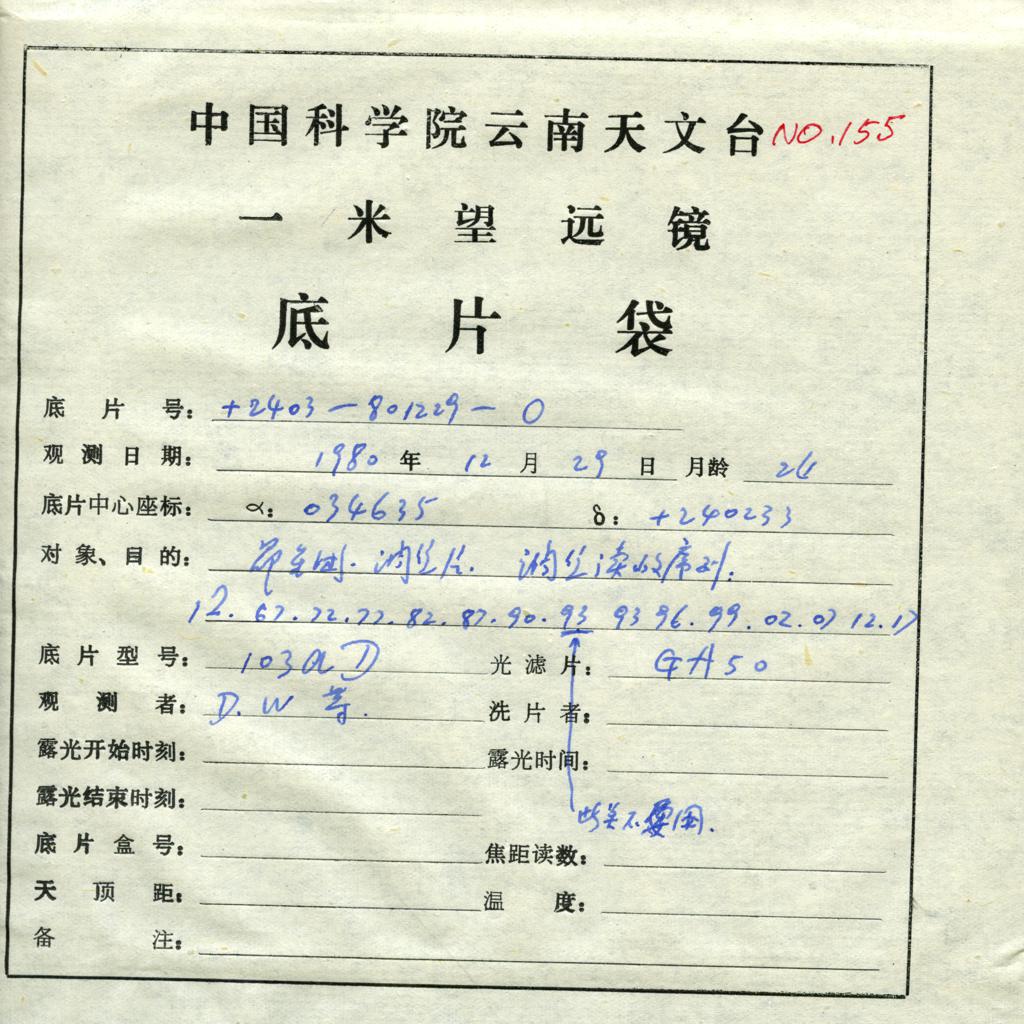 中国科学院云南天文台 NO.155
一米望远镜
底片袋
底片号: +2403-801229-0
观测日期: 1980年12月29日 月龄
底片中心座标: α: 034635 δ: +240233
对象、目的:
12. 67. 72. 77. 82. 87. 90. 93 93 96. 99. 02. 07 12. 17
底片型号: 103aD 光滤片: GH50
观测者: D. W 等. 洗片者:
露光开始时刻: 露光时间:
露光结束时刻:
此关不要用.
底片盒号: 焦距读数:
天顶距: 温度:
备注: